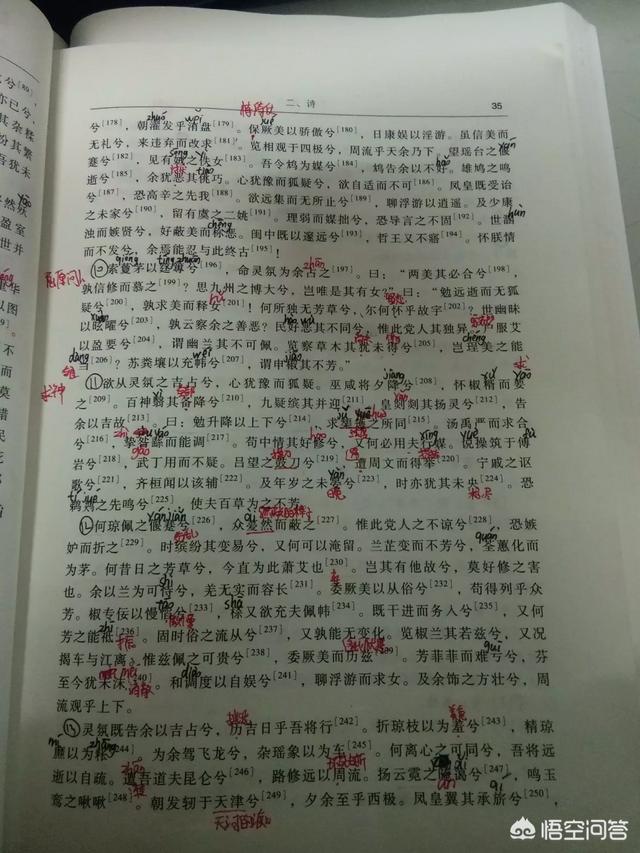 二、诗 35
兮[178]，朝濯发乎洧盘[179]。保厥美以骄傲兮[180]，日康娱以淫游。虽信美而
无礼兮，来违弃而改求[181]。览相观于四极兮，周流乎天余乃下。望瑶台之偃
蹇兮[182]，见有娀之佚女[183]。吾令鸩为媒兮[184]，鸩告余以不好。雄鸠之鸣
逝兮[185]，余犹恶其佻巧[186]。心犹豫而狐疑兮，欲自适而不可。凤皇既受诒
兮[187]，恐高辛之先我[188]。欲远集而无所止兮[189]，聊浮游以逍遥。及少康
之未家兮[190]，留有虞之二姚[191]。理弱而媒拙兮，恐导言之不固[192]。世溷
浊而嫉贤兮，好蔽美而称恶。闺中既以邃远兮[193]，哲王又不寤[194]。怀朕情
而不发兮，余焉能忍与此终古[195]！
⑩索藑茅以筳篿兮[196]，命灵氛为余占之[197]。曰：“两美其必合兮[198]，
孰信修而慕之[199]？思九州之博大兮，岂唯是其有女？”曰：“勉远逝而无狐
疑兮[200]，孰求美而释女[201]！何所独无芳草兮，尔何怀乎故宇[202]？世幽昧
以昡曜兮[203]，孰云察余之善恶？民好恶其不同兮，惟此党人其独异。户服艾
以盈要兮[204]，谓幽兰其不可佩。览察草木其犹未得兮[205]，岂珵美之能
当[206]？苏粪壤以充帏兮[207]，谓申椒其不芳。”
⑪欲从灵氛之吉占兮，心犹豫而狐疑。巫咸将夕降兮[208]，怀椒糈而要
之[209]。百神翳其备降兮[210]，九疑缤其并迎[211]。皇剡剡其扬灵兮[212]，告
余以吉故[213]。曰：勉升降以上下兮[214]，求榘矱之所同[215]。汤禹严而求合
兮[216]，挚咎繇而能调[217]。苟中情其好修兮，又何必用夫行媒。说操筑于傅
岩兮[218]，武丁用而不疑。吕望之鼓刀兮[219]，遭周文而得举[220]。宁戚之讴
歌兮[221]，齐桓闻以该辅[222]。及年岁之未晏兮[223]，时亦犹其未央[224]。恐
鹈鴂之先鸣兮[225]，使夫百草为之不芳。
⑫何琼佩之偃蹇兮[226]，众薆然而蔽之[227]。惟此党人之不谅兮[228]，恐嫉
妒而折之[229]。时缤纷其变易兮，又何可以淹留。兰芷变而不芳兮，荃蕙化而
为茅。何昔日之芳草兮，今直为此萧艾也[230]。岂其有他故兮，莫好修之害
也。余以兰为可恃兮，羌无实而容长[231]。委厥美以从俗兮[232]，苟得列乎众
芳。椒专佞以慢慆兮[233]，榝又欲充夫佩帏[234]。既干进而务入兮[235]，又何
芳之能祗[236]。固时俗之流从兮[237]，又孰能无变化。览椒兰其若兹兮，又况
揭车与江离。惟兹佩之可贵兮[238]，委厥美而历兹[239]。芳菲菲而难亏兮，芬
至今犹未沬[240]。和调度以自娱兮[241]，聊浮游而求女。及余饰之方壮兮，周
流观乎上下。
⑬灵氛既告余以吉占兮，历吉日乎吾将行[242]。折琼枝以为羞兮[243]，精琼
爢以为粻[244]。为余驾飞龙兮，杂瑶象以为车[245]。何离心之可同兮，吾将远
逝以自疏。邅吾道夫昆仑兮[246]，路修远以周流。扬云霓之晻蔼兮[247]，鸣玉
鸾之啾啾[248]。朝发轫于天津兮[249]，夕余至乎西极。凤皇翼其承旂兮[250]，
悟空问答